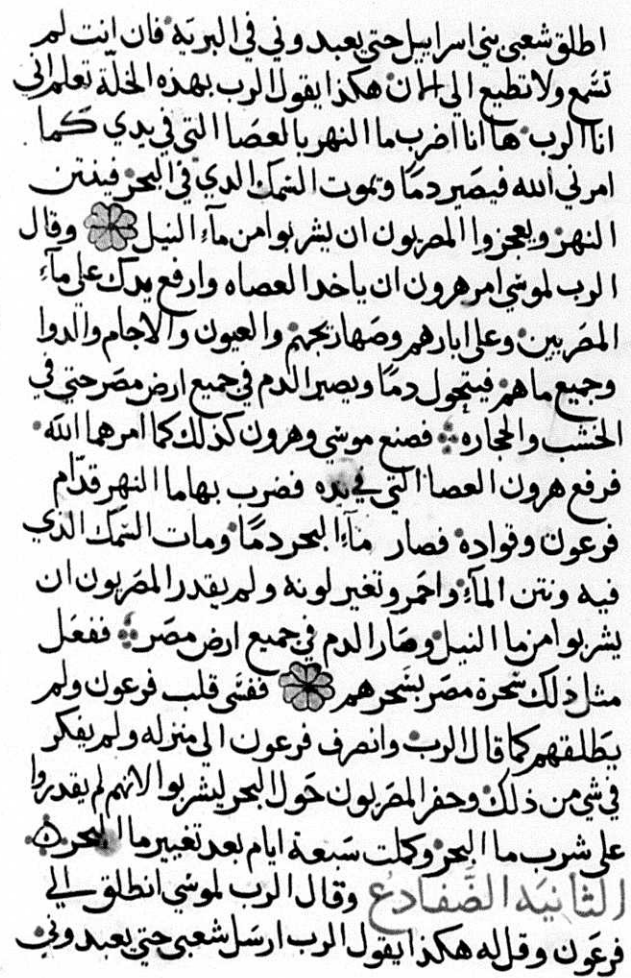 اطلق شعبي بني اسراييل حتي يعبدوني في البرية فان انت لم
تسمع ولا تطيع الي الان هكذا يقول الرب بهذه الخلة تعلم اني
انا الرب ها انا اضرب ما النهر بالعصا التي في يدي كما
امرني الله فيصير دمًا وتموت السمك الدي في البحر فينتن
النهر ويعجزوا المصريون ان يشربوا من مآء النيل وقال
الرب لموسي امر هرون ان ياخد العصاه وارفع يدك علي مآء
المصريين وعلي ابارهم وصهاريجهم والعيون والاجام والدوا
وجميع ماهم فيتحول دمًا ويصير الدم في جميع ارض مصر حتي في
الخشب والحجاره فصنع موسي وهرون كذلك كما امرهما الله
فرفع هرون العصا التي في يده فضرب بها ما النهر قدّام
فرعون وقواده فصار مآء البحر دمًا ومات السمك الذي
فيه ونتن المآء واحمر وتغير لونه ولم يقدر المصريون ان
يشربوا من ما النيل وصار الدم في جميع ارض مصر ففعل
مثل ذلك سحرة مصر بسحرهم فقسي قلب فرعون ولم
يطلقهم كما قال الرب وانصرف فرعون الي منزله ولم يفكر
في شي من ذلك وحفر المصريون حول البحر ليشربوا لانهم لم يقدروا
علي شرب ما البحر وكملت سبعة ايام بعد تغيير ما البحر
الثانيه الضفادع وقال الرب لموسي انطلق الي
فرعون وقل له هكذا يقول الرب ارسل شعبي حتي يعبدوني